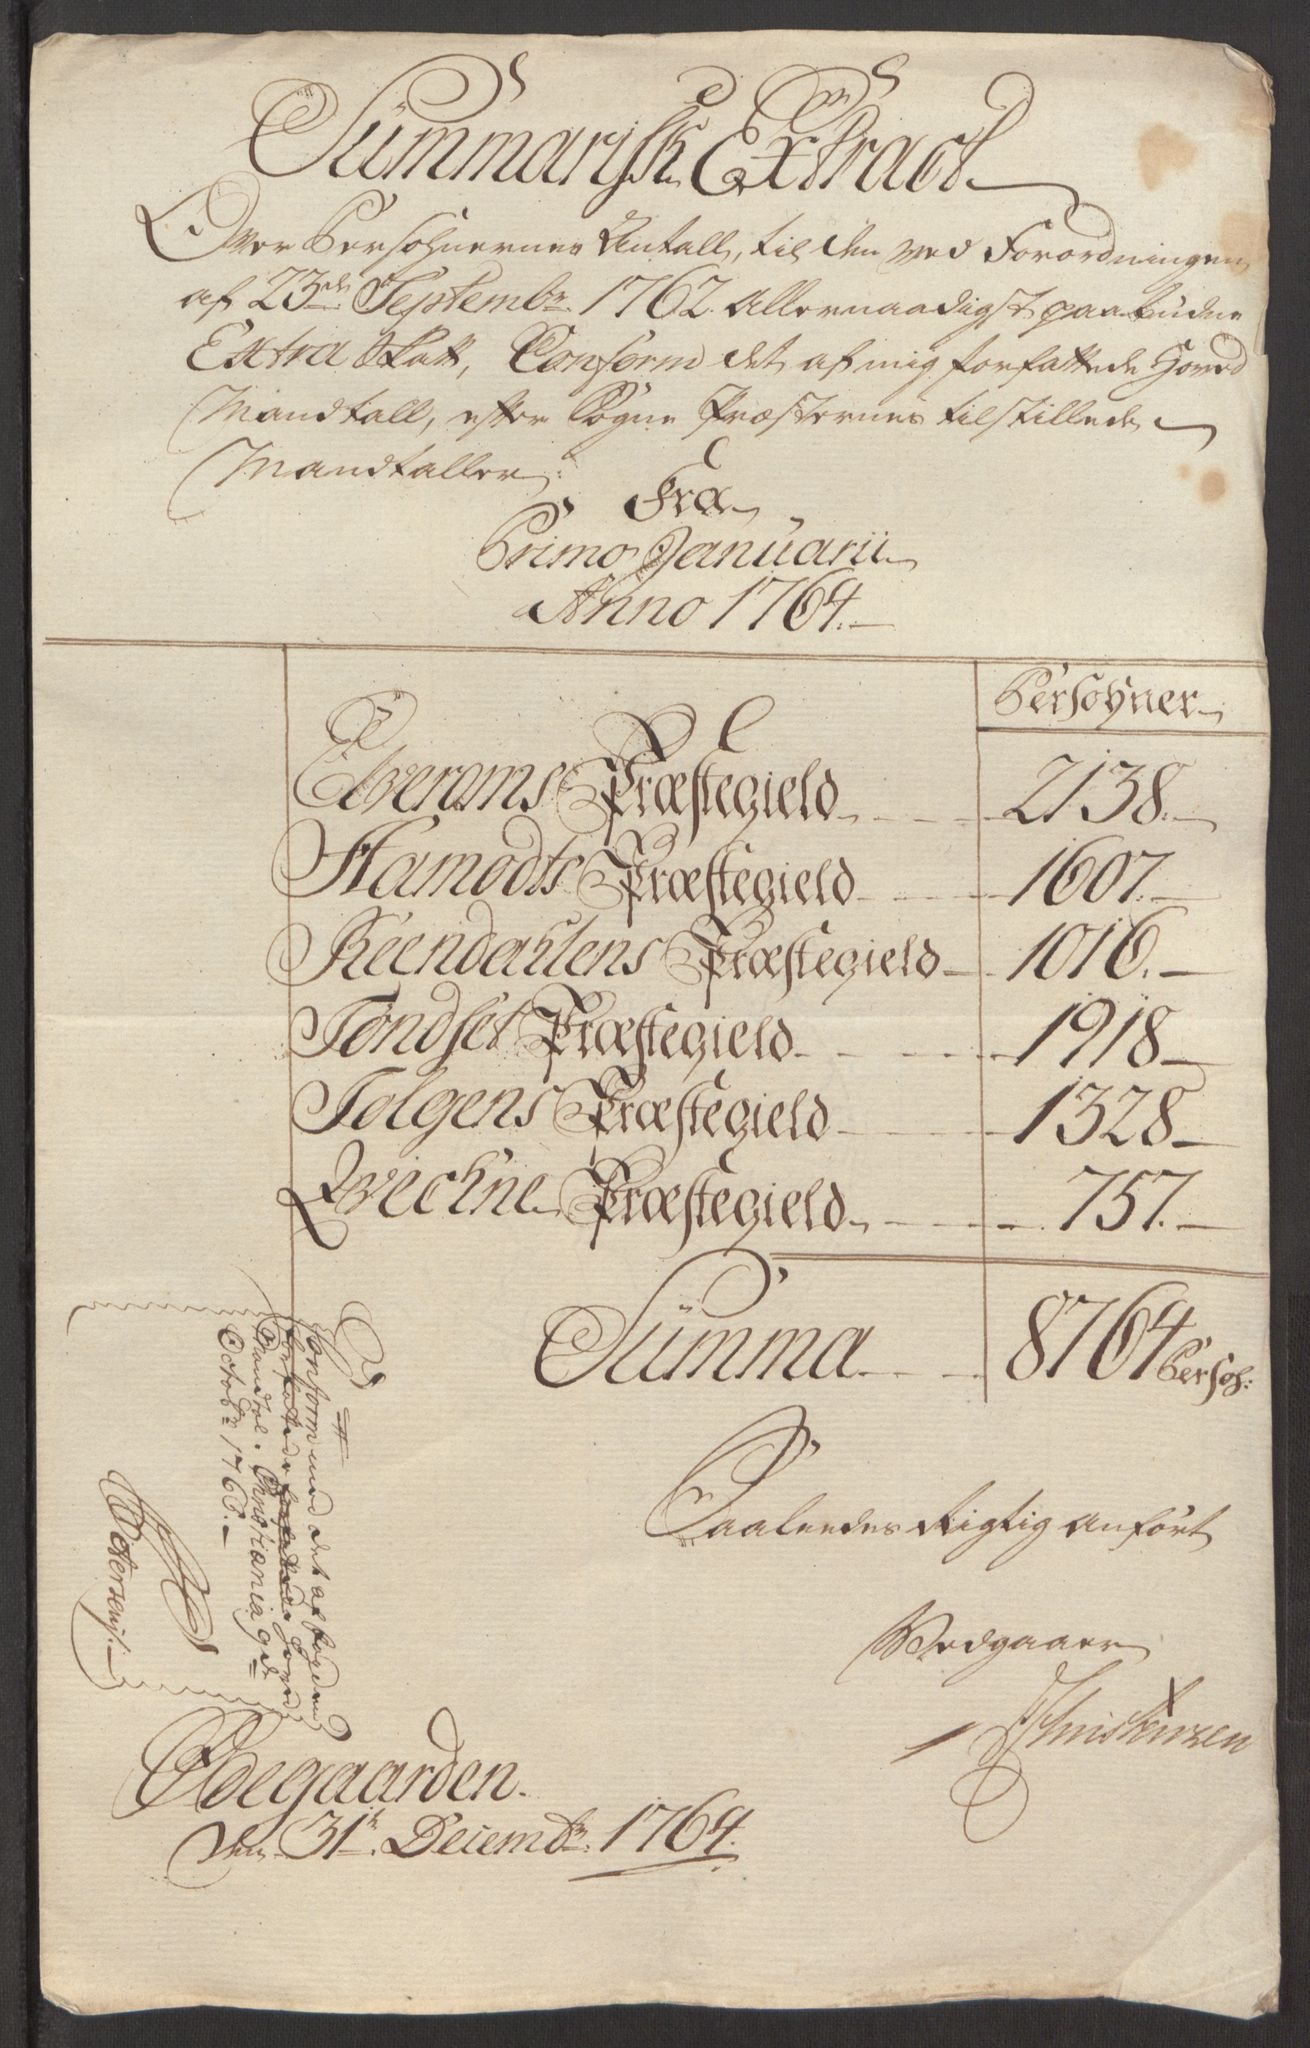 Summarisk Extract
Over Persohnernes Antall, til den ved Forordningen
af 23de Septembr. 1762. Allernaadigst paabudne
Extra Skatt, Conform det af mig forfattede Hoved
Mandtall, efter Sogne Præsternes tilstillede
Mandtaller.
Fra
Primo Januarii
Anno 1764.
Persohner
Elverums Præstegield 2138.
Aamodts Præstegield 1607.
Reendahlens Præstegield 1016.
Tøndset Præstegield 1918
Tolgens Præstegield 1328
Qvickne Præstegield 757.
Summa 8764 Persoh:
Saaledes Rigtig anført
Vedgaaer
Christensen
Conform med det af fogden
forfattede Hoved
Mandtl. Christiania 9de
Octobr 1766.
Petersen.
Ødegaarden.
den 31te Decembr. 1764.